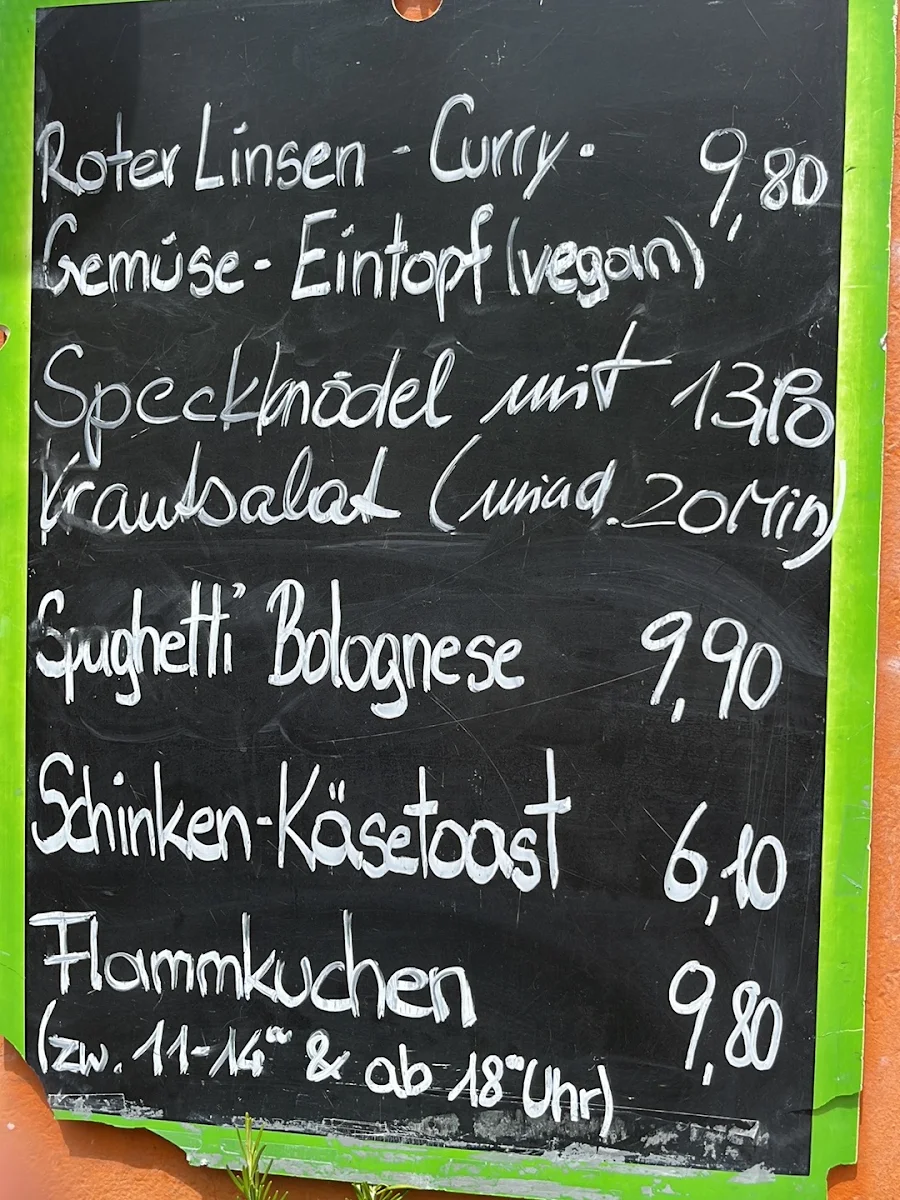 Roter Linsen - Curry · 9,80
Gemüse - Eintopf (vegan)
Speckknödel mit 13,80
Krautsalat (mind. 20 Min)
Spaghetti Bolognese 9,90
Schinken-Käsetoast 6,10
Flammkuchen 9,80
(zw. 11-14⁰⁰ & ab 18⁰⁰ Uhr)